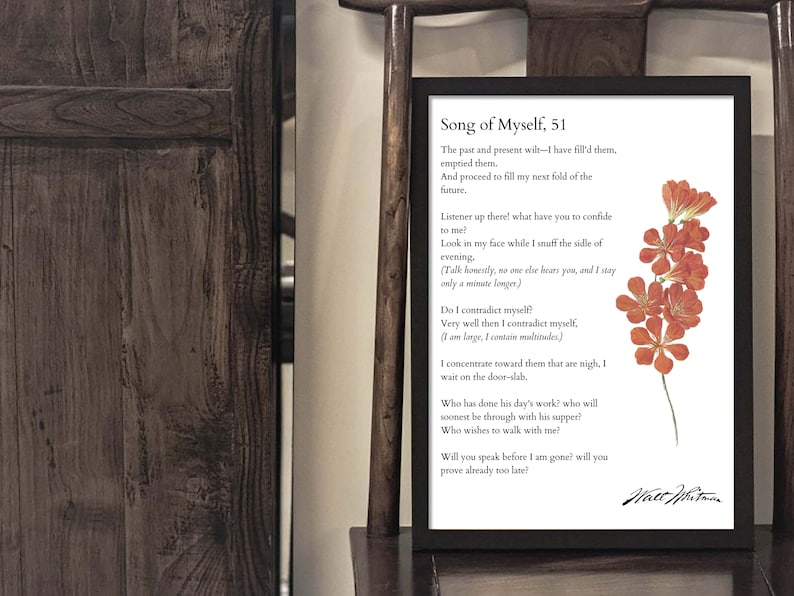 Song of Myself, 51
The past and present wilt—I have fill'd them,
emptied them.
And proceed to fill my next fold of the
future.
Listener up there! what have you to confide
to me?
Look in my face while I snuff the sidle of
evening,
(Talk honestly, no one else hears you, and I stay
only a minute longer.)
Do I contradict myself?
Very well then I contradict myself,
(I am large, I contain multitudes.)
I concentrate toward them that are nigh, I
wait on the door-slab.
Who has done his day's work? who will
soonest be through with his supper?
Who wishes to walk with me?
Will you speak before I am gone? will you
prove already too late?
Walt Whitman